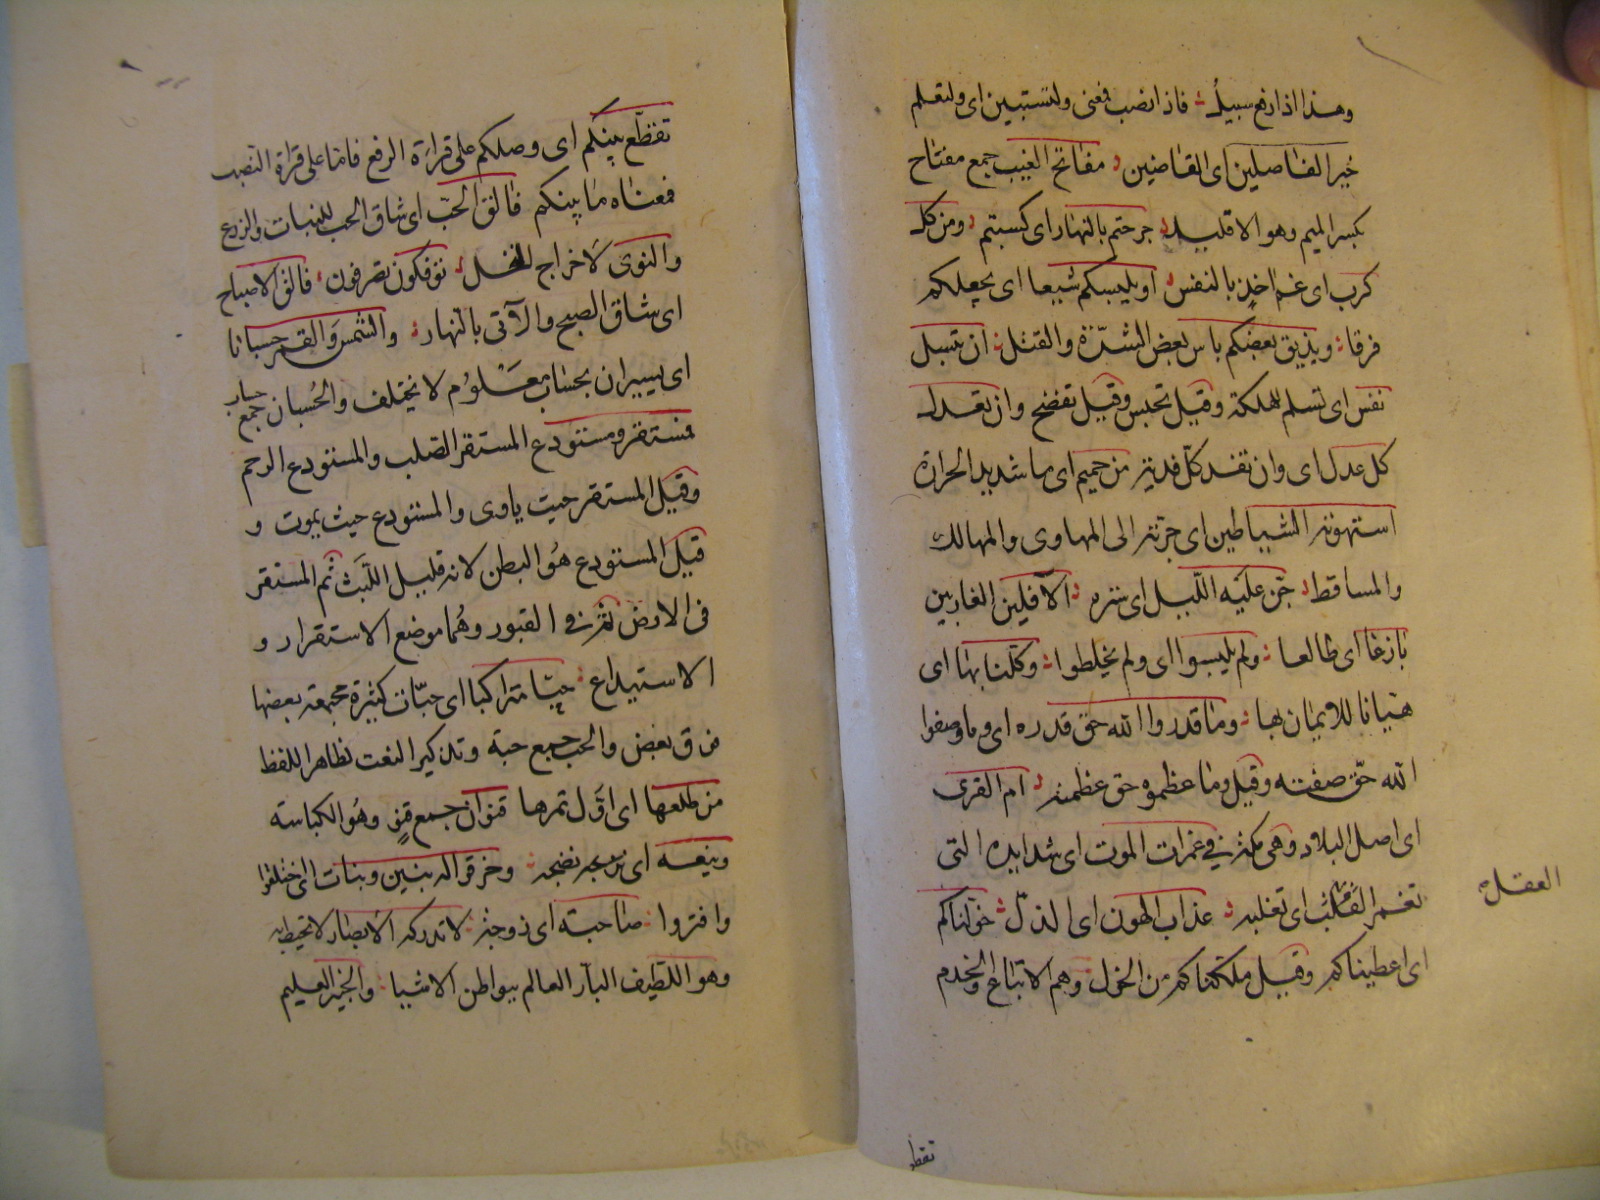 وهذا اذا رفع سبيل فاذا نصب فمعنى ولتستبين اى ولتعلم
خير الفاصلين اى القاضين مفاتح الغيب جمع مفتاح
بكسر الميم وهو الاقليد جرحتم بالنهار اى كسبتم ومن كل
كرب اى غم اخذ بالنفس او يلبسكم شيعا اى يجعلكم
فرقا ويذيق بعضكم باس بعض الشدّة والقتل ان تبسل
نفس اى تسلم للهلكة وقيل تحبس وقيل تفضح وان تعدل
كل عدل اى وان تفد كلّ فدية من حميم اى ما شديد الحرارة
استهوته الشياطين اى جرّته الى المهاوى والمهالك
والمساقط جَن عليه اللّيل اى ستره الآفلين الغاربين
بازغا اى طالعا ولم يلبسوا اى ولم يخلطوا وكلنا بها اى
هيانا للايمان بها وما قدروا الله حق قدره اى وما وصفوا
الله حقّ صفته وقيل وما عظموه حق عظمته ام القرى
اى اصل البلاد وهى مكة فى غمرات الموت اى شدايده التى
تغمر القلب اى تغلبه عذاب الهون اى الذلّ خوّلناكم
العقل
اى اعطيناكم وقيل ملكناكم من الخول وهم الاتباع والخدم
تقطع
تقطّع بينكم اى وصلكم على قراءة الرفع فامّا على قراة النّصب
فمعناه ما بينكم فالق الحبّ اى شاق الحب للنبات والزرع
والنوى لاخراج النخل تؤفكون تصرفون فالق الاصباح
اى شاق الصبح والآتى بالنهار والشمس والقمر حسبانا
اى يسيران بحساب معلوم لا يختلف والحُسبان جمع حساب
فمستقر ومستودع المستقر الصّلب والمستودع الرحم
وقيل المستقر حيث ياوى والمستودع حيث يموت و
قيل المستودع هو البطن لانه قليل اللّبث ثم المستقر
فى الارض ثم فى القبور وهُما موضع الاستقرار و
الاستيداع حبّا متراكبا اى حبّات كثيرة مجتمعة بعضها
فوق بعض والحب جمع حبة وتذكير النعت لظاهر اللفظ
من طلعها اى اوّل ثمرها قنوان جمع قنو وهُو الكباسة
وينعه اى نضجه وخرقوا له بنين وبنات اى اختلقوا
وافتروا صاحبة اى زوجة لا تدركه الابصار لا تحيط به
وهو اللطيف البآر العالم ببواطن الاشيا والخبير العليم